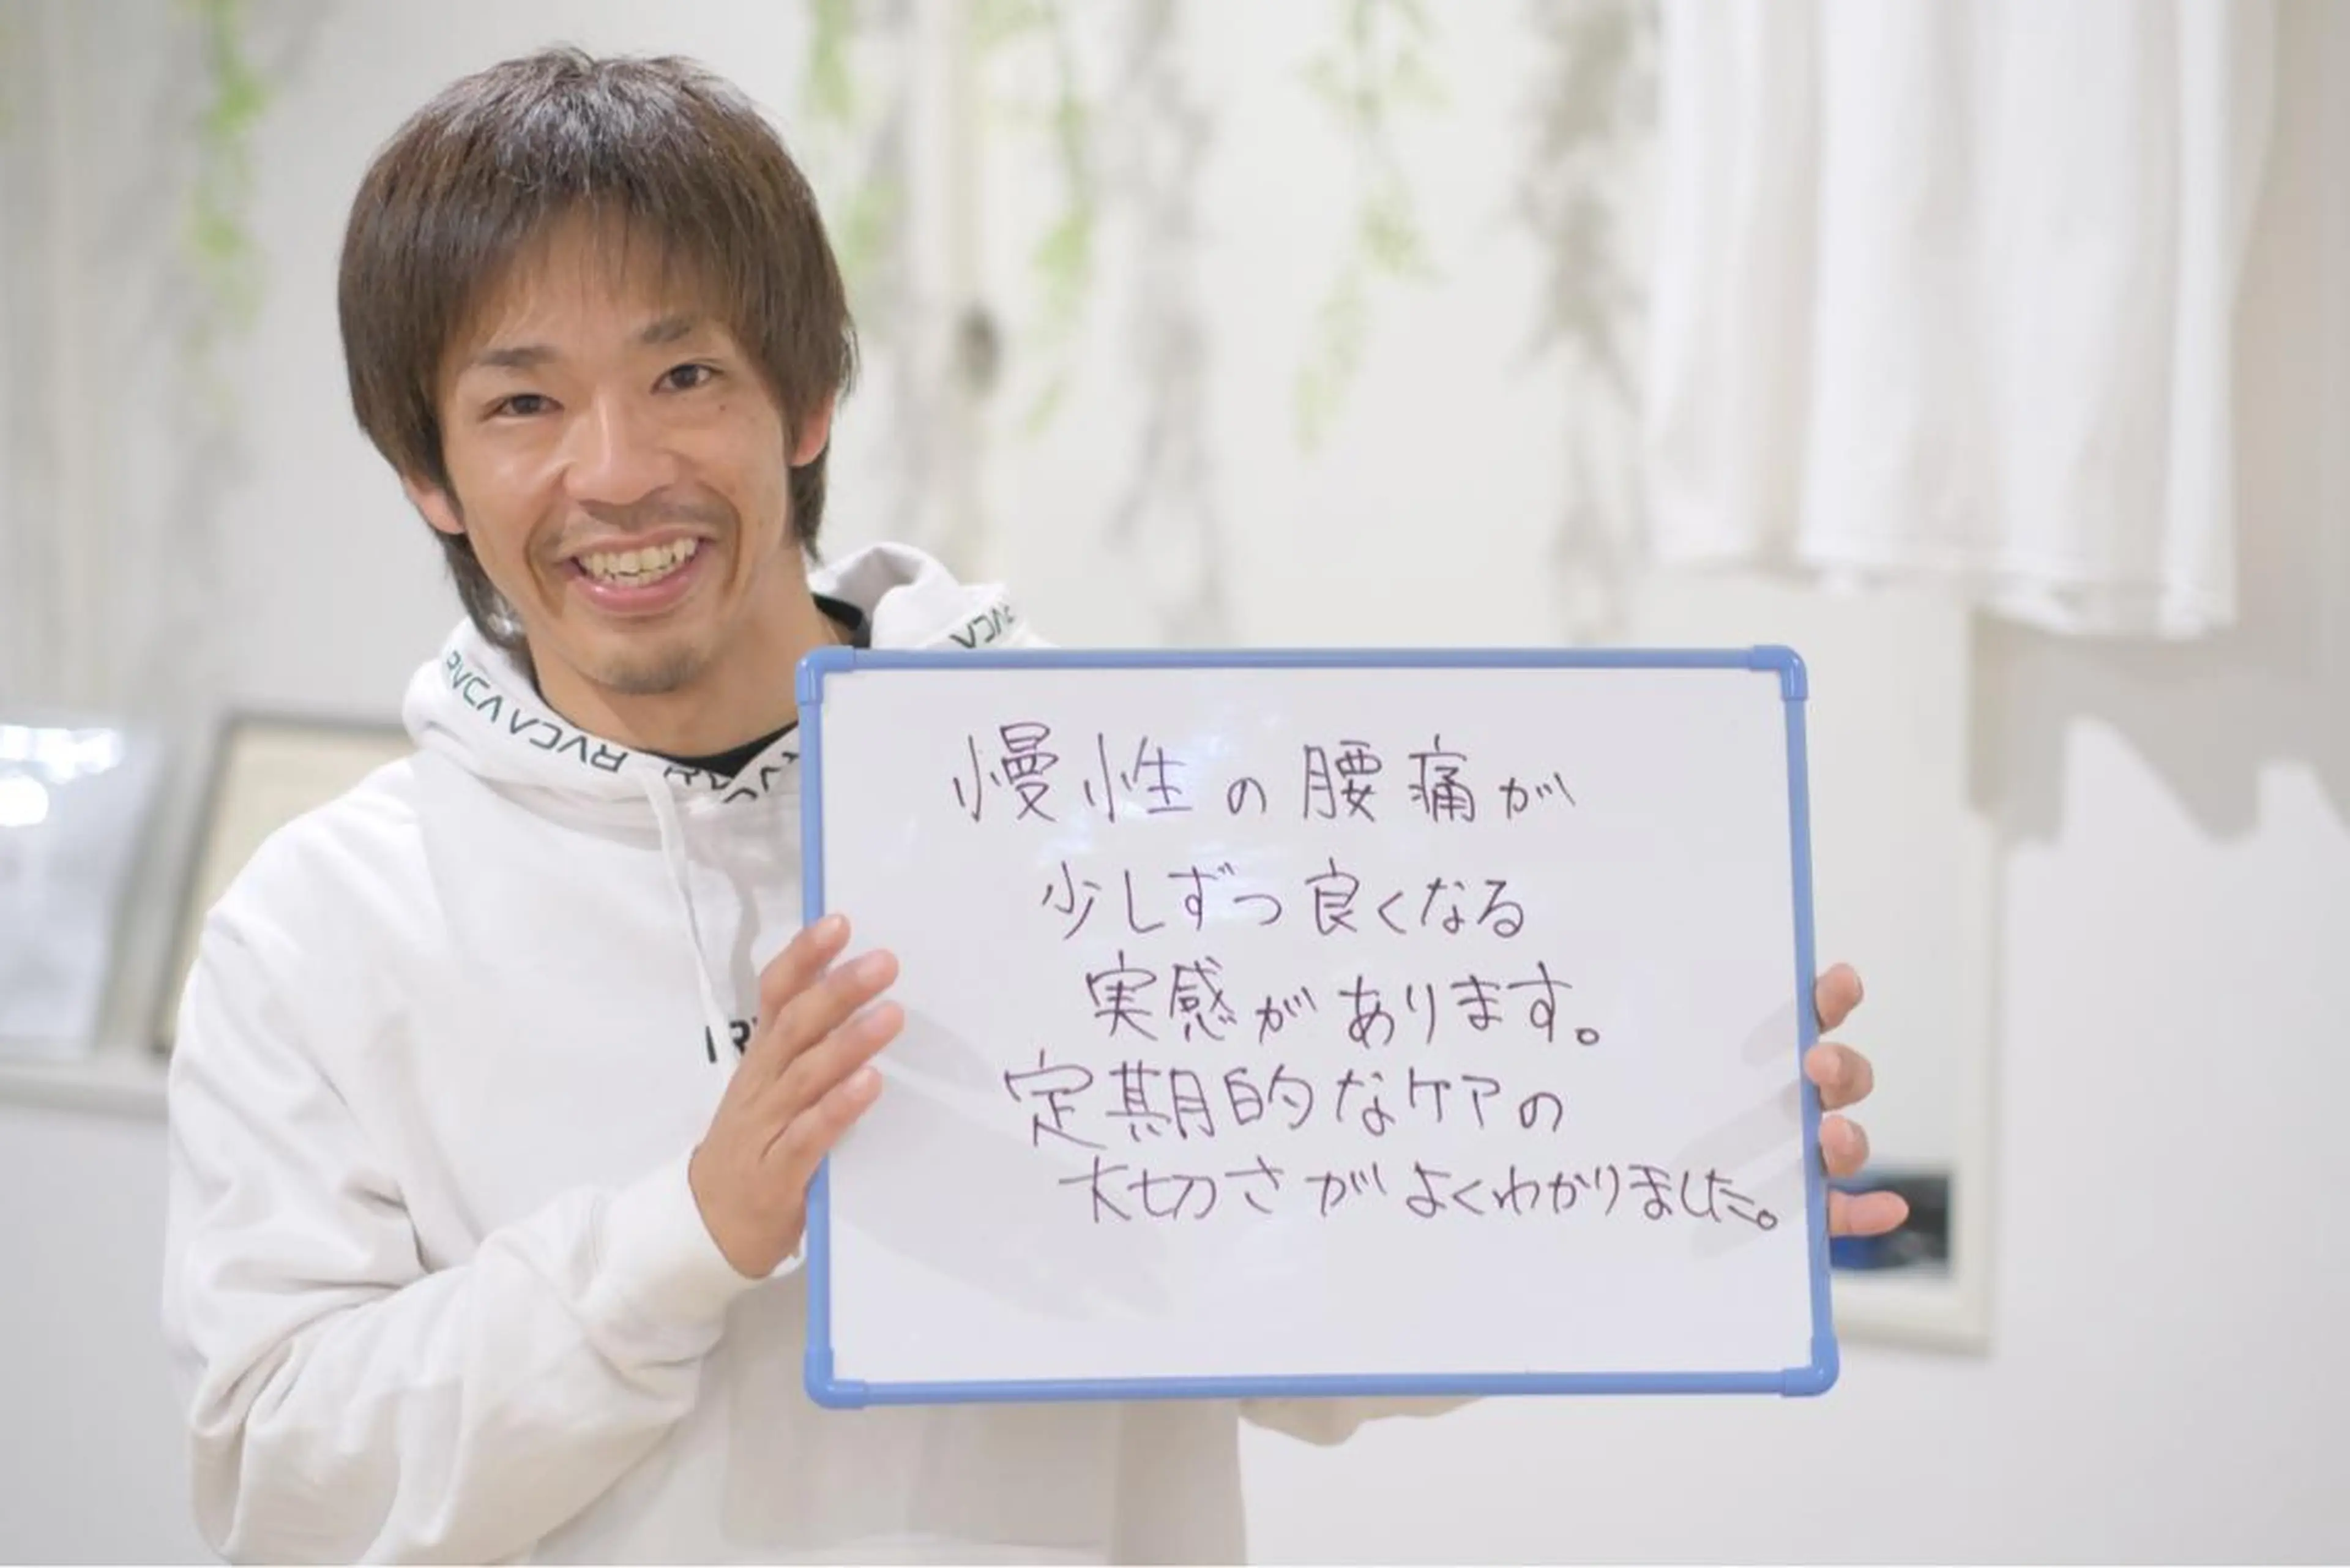 RVCA RVCA
慢性の腰痛が
少しずつ良くなる
実感があります。
定期的なケアの
大切さがよくわかりました。